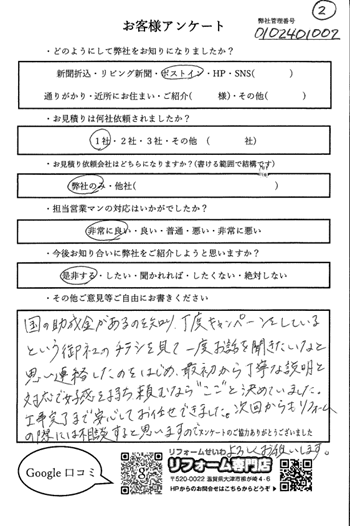 ②
お客様アンケート
弊社管理番号
0102401002
・どのようにして弊社をお知りになりましたか？
新聞折込・リビング新聞・ポストイン・HP・SNS(　　　)
通りがかり・近所にお住まい・ご紹介(　　様)・その他(　　　)
・お見積りは何社依頼されましたか？
1社・2社・3社・その他 (　　　社)
・お見積り依頼会社はどちらになりますか？(書ける範囲で結構です)
弊社のみ・他社(　　　)
・担当営業マンの対応はいかがでしたか？
非常に良い・良い・普通・悪い・非常に悪い
・今後お知り合いに弊社をご紹介しようと思いますか？
是非する・したい・聞かれれば・したくない・絶対しない
・その他ご意見等ご自由にお書きください
国の助成金があるのを知り、丁度キャンペーンをしている
という御社のチラシを見て一度お話を聞きたいなと
思い連絡したのをはじめ、最初から丁寧な説明と
対応で好感を持ち頼むなら"ここ"と決めていました。
工事完了まで安心しておまかせできました。次回からもリフォーム
の際には相談すると思いますので
よろしくお願いします。
アンケートのご協力ありがとうございました
Google 口コミ
リフォームせいわ
リフォーム専門店
〒520-0022 滋賀県大津市柳が崎4-6
HPからのお問合せはこちらからどうぞ